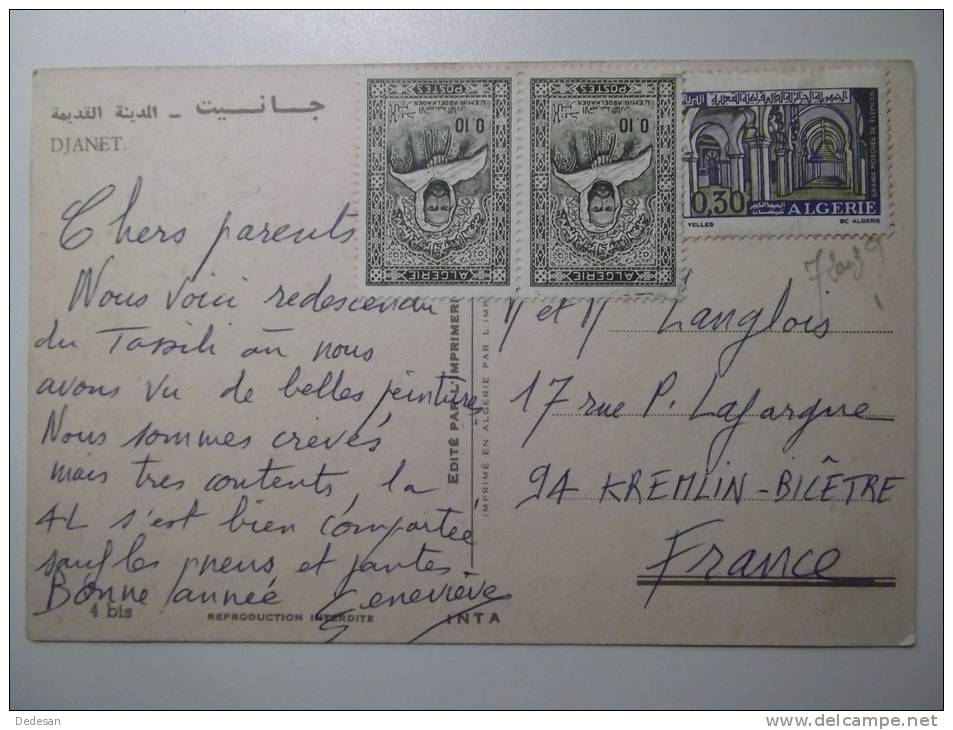 جـانـيـت - المدينة القديمة
DJANET.
Chers parents
Nous voici redescendu
du Tassili où nous
avons vu de belles peintures
Nous sommes crevés
mais tres contents, la
4L s'est bien comportée
sauf les pneus et jantes.
Bonne année Geneviève
4 bis
REPRODUCTION INTERDITE
INTA
EDITÉ PAR L'IMPRIMERI
IMPRIMÉ EN ALGÉRIE PAR L'IMP
POSTES
L'EMIR ABDELKADER
0.10
ALGERIE
POSTES
L'EMIR ABDELKADER
0.10
ALGERIE
GRANDE MOSQUÉE DE TLEMCEN
0,30 ALGERIE
YELLES BC ALGERIE
M et M Langlois
17 rue P. Lafargue
94 KREMLIN-BICÊTRE
France
Dedesan
www.delcampe.net